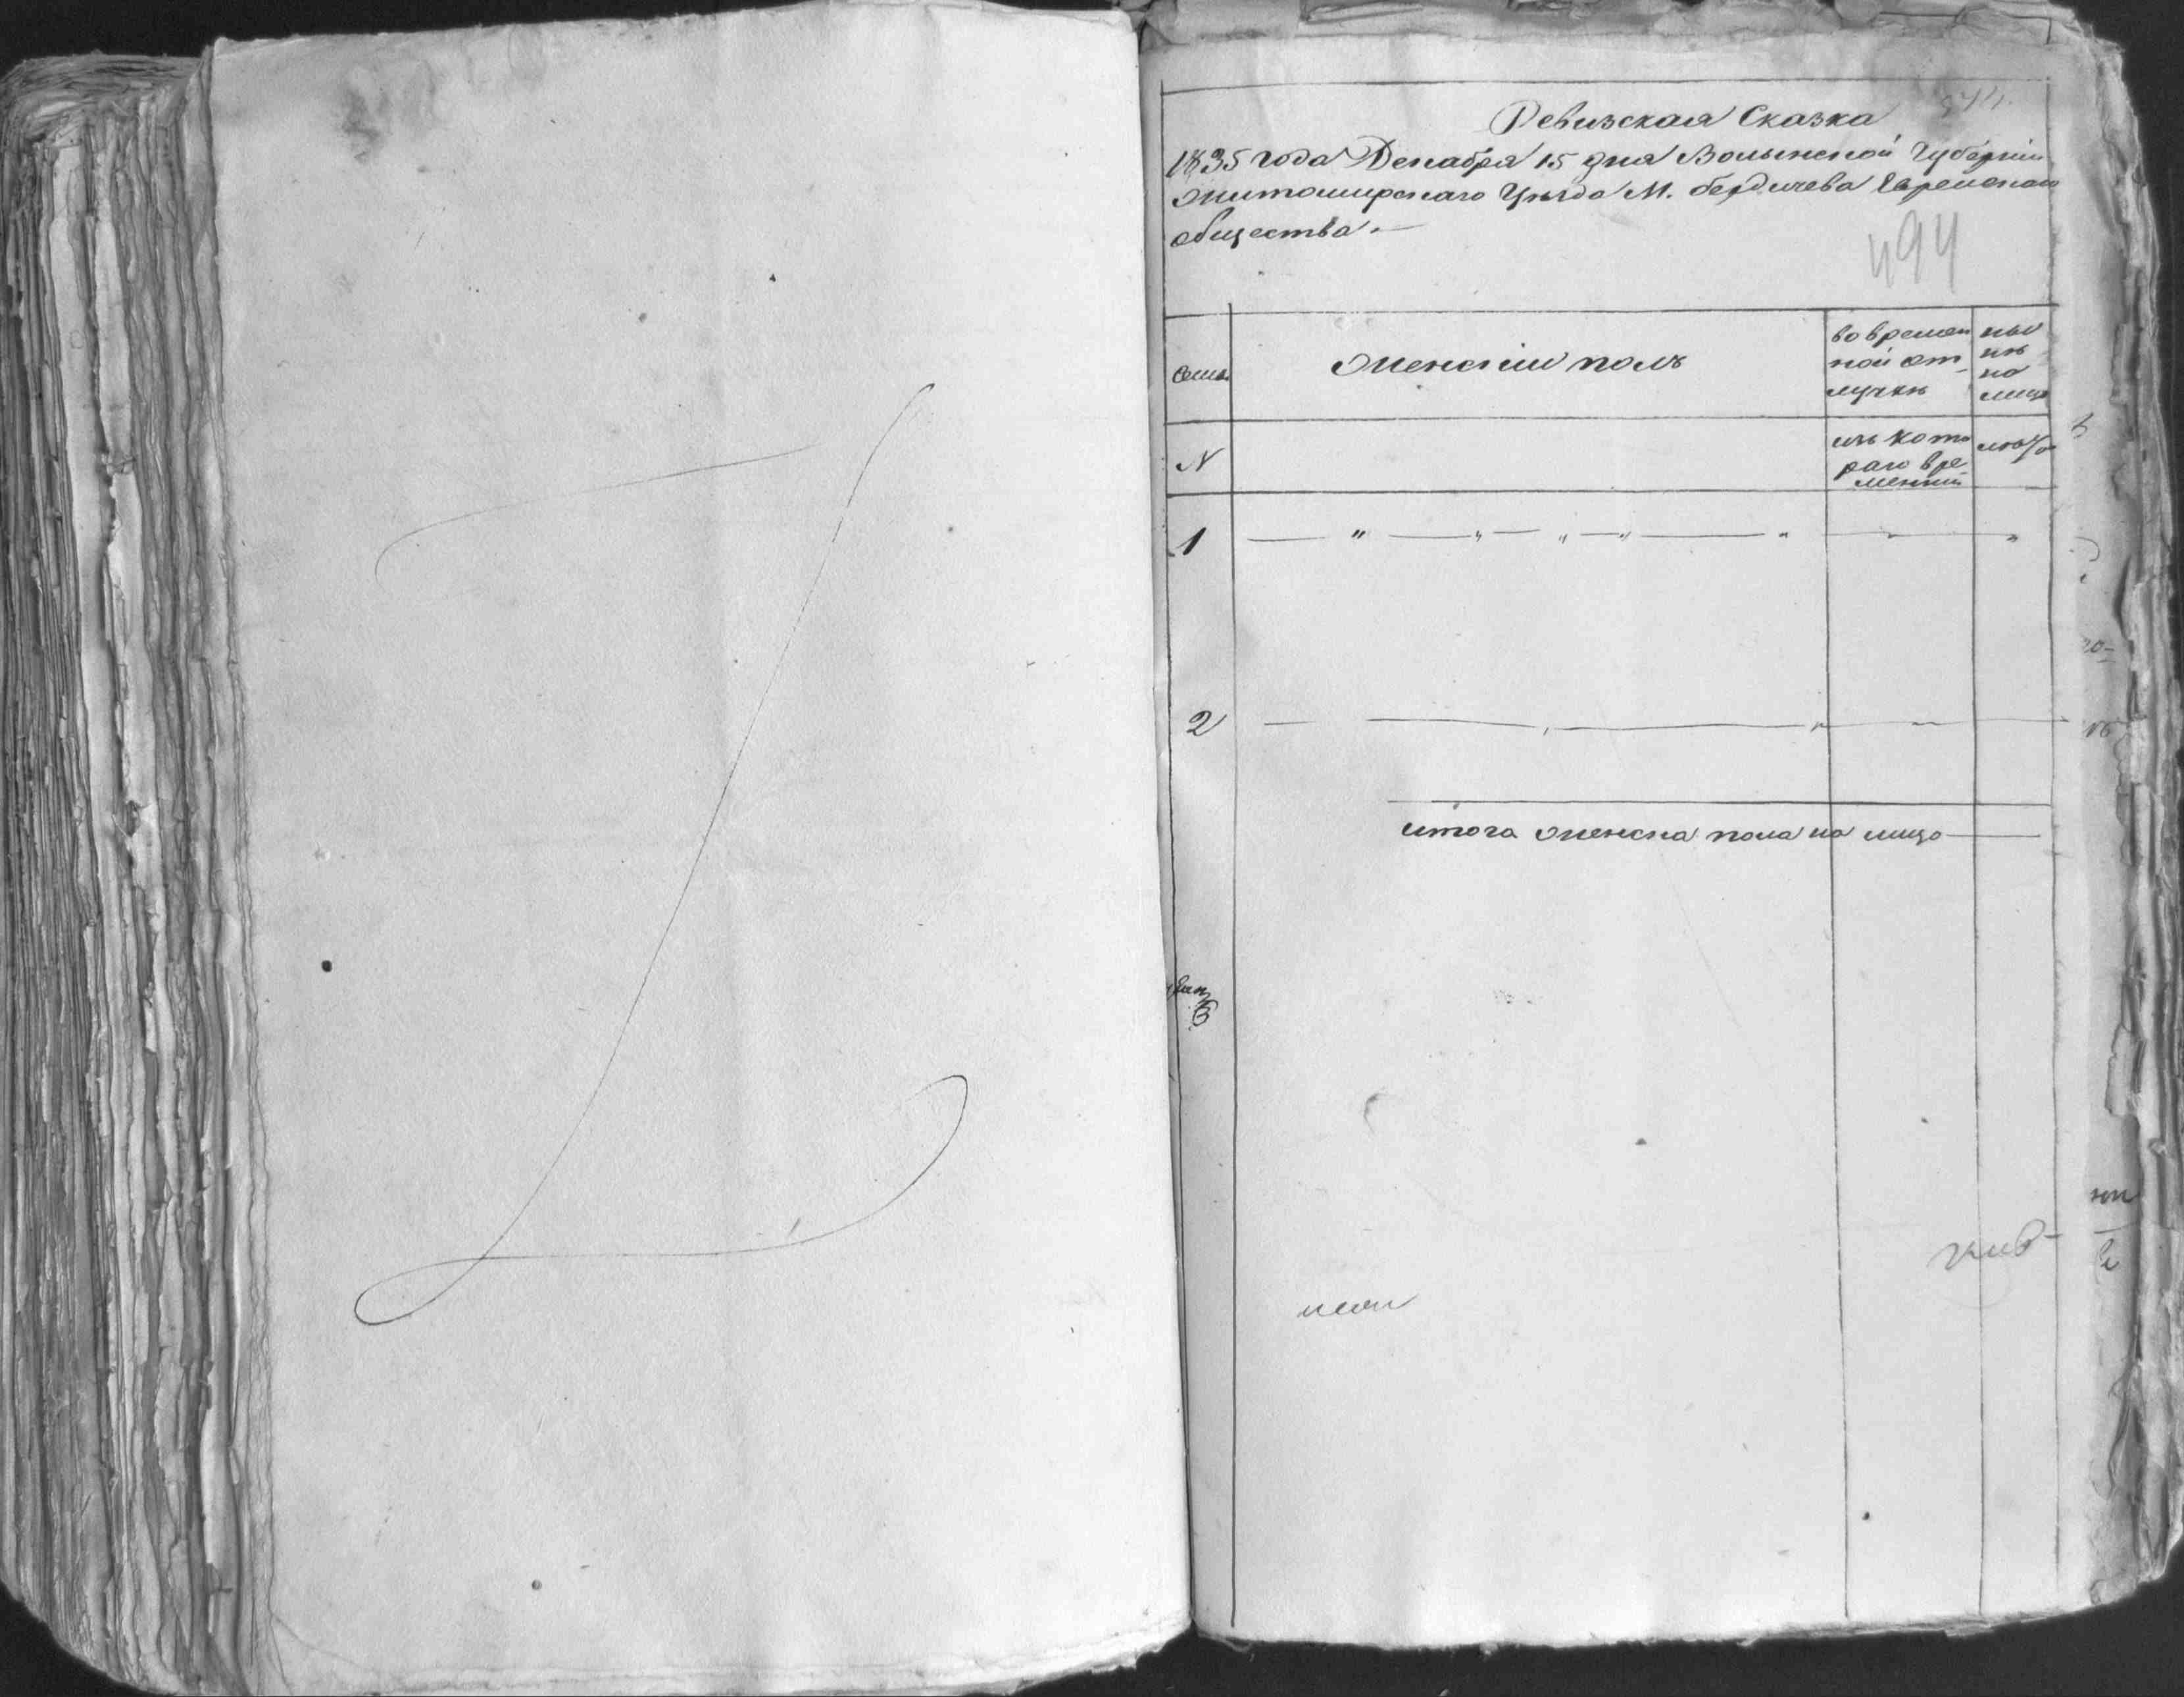 Ревизская Сказка
1835 года Декабря 15 дня Волынской Губерніи
Житомирскаго Уѣзда М. бердичева Еврейскаго
общества.
494
Семьи
Женскій полъ
во времен
ной от
лучкѣ
ны
нѣ
на
лицо
N
изъ кото
раго вре
менни
лѣта
1
2
итого женска пола на лицо